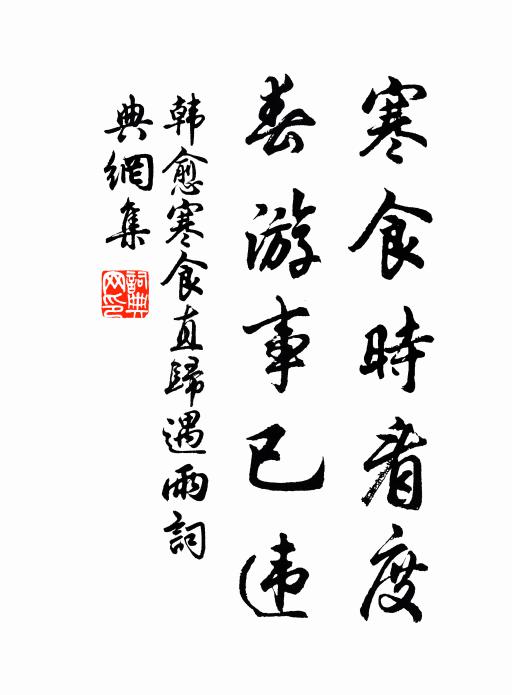 寒食時看度
春游事已违
韩愈寒食直歸遇雨詞
典網集
詞典
网印